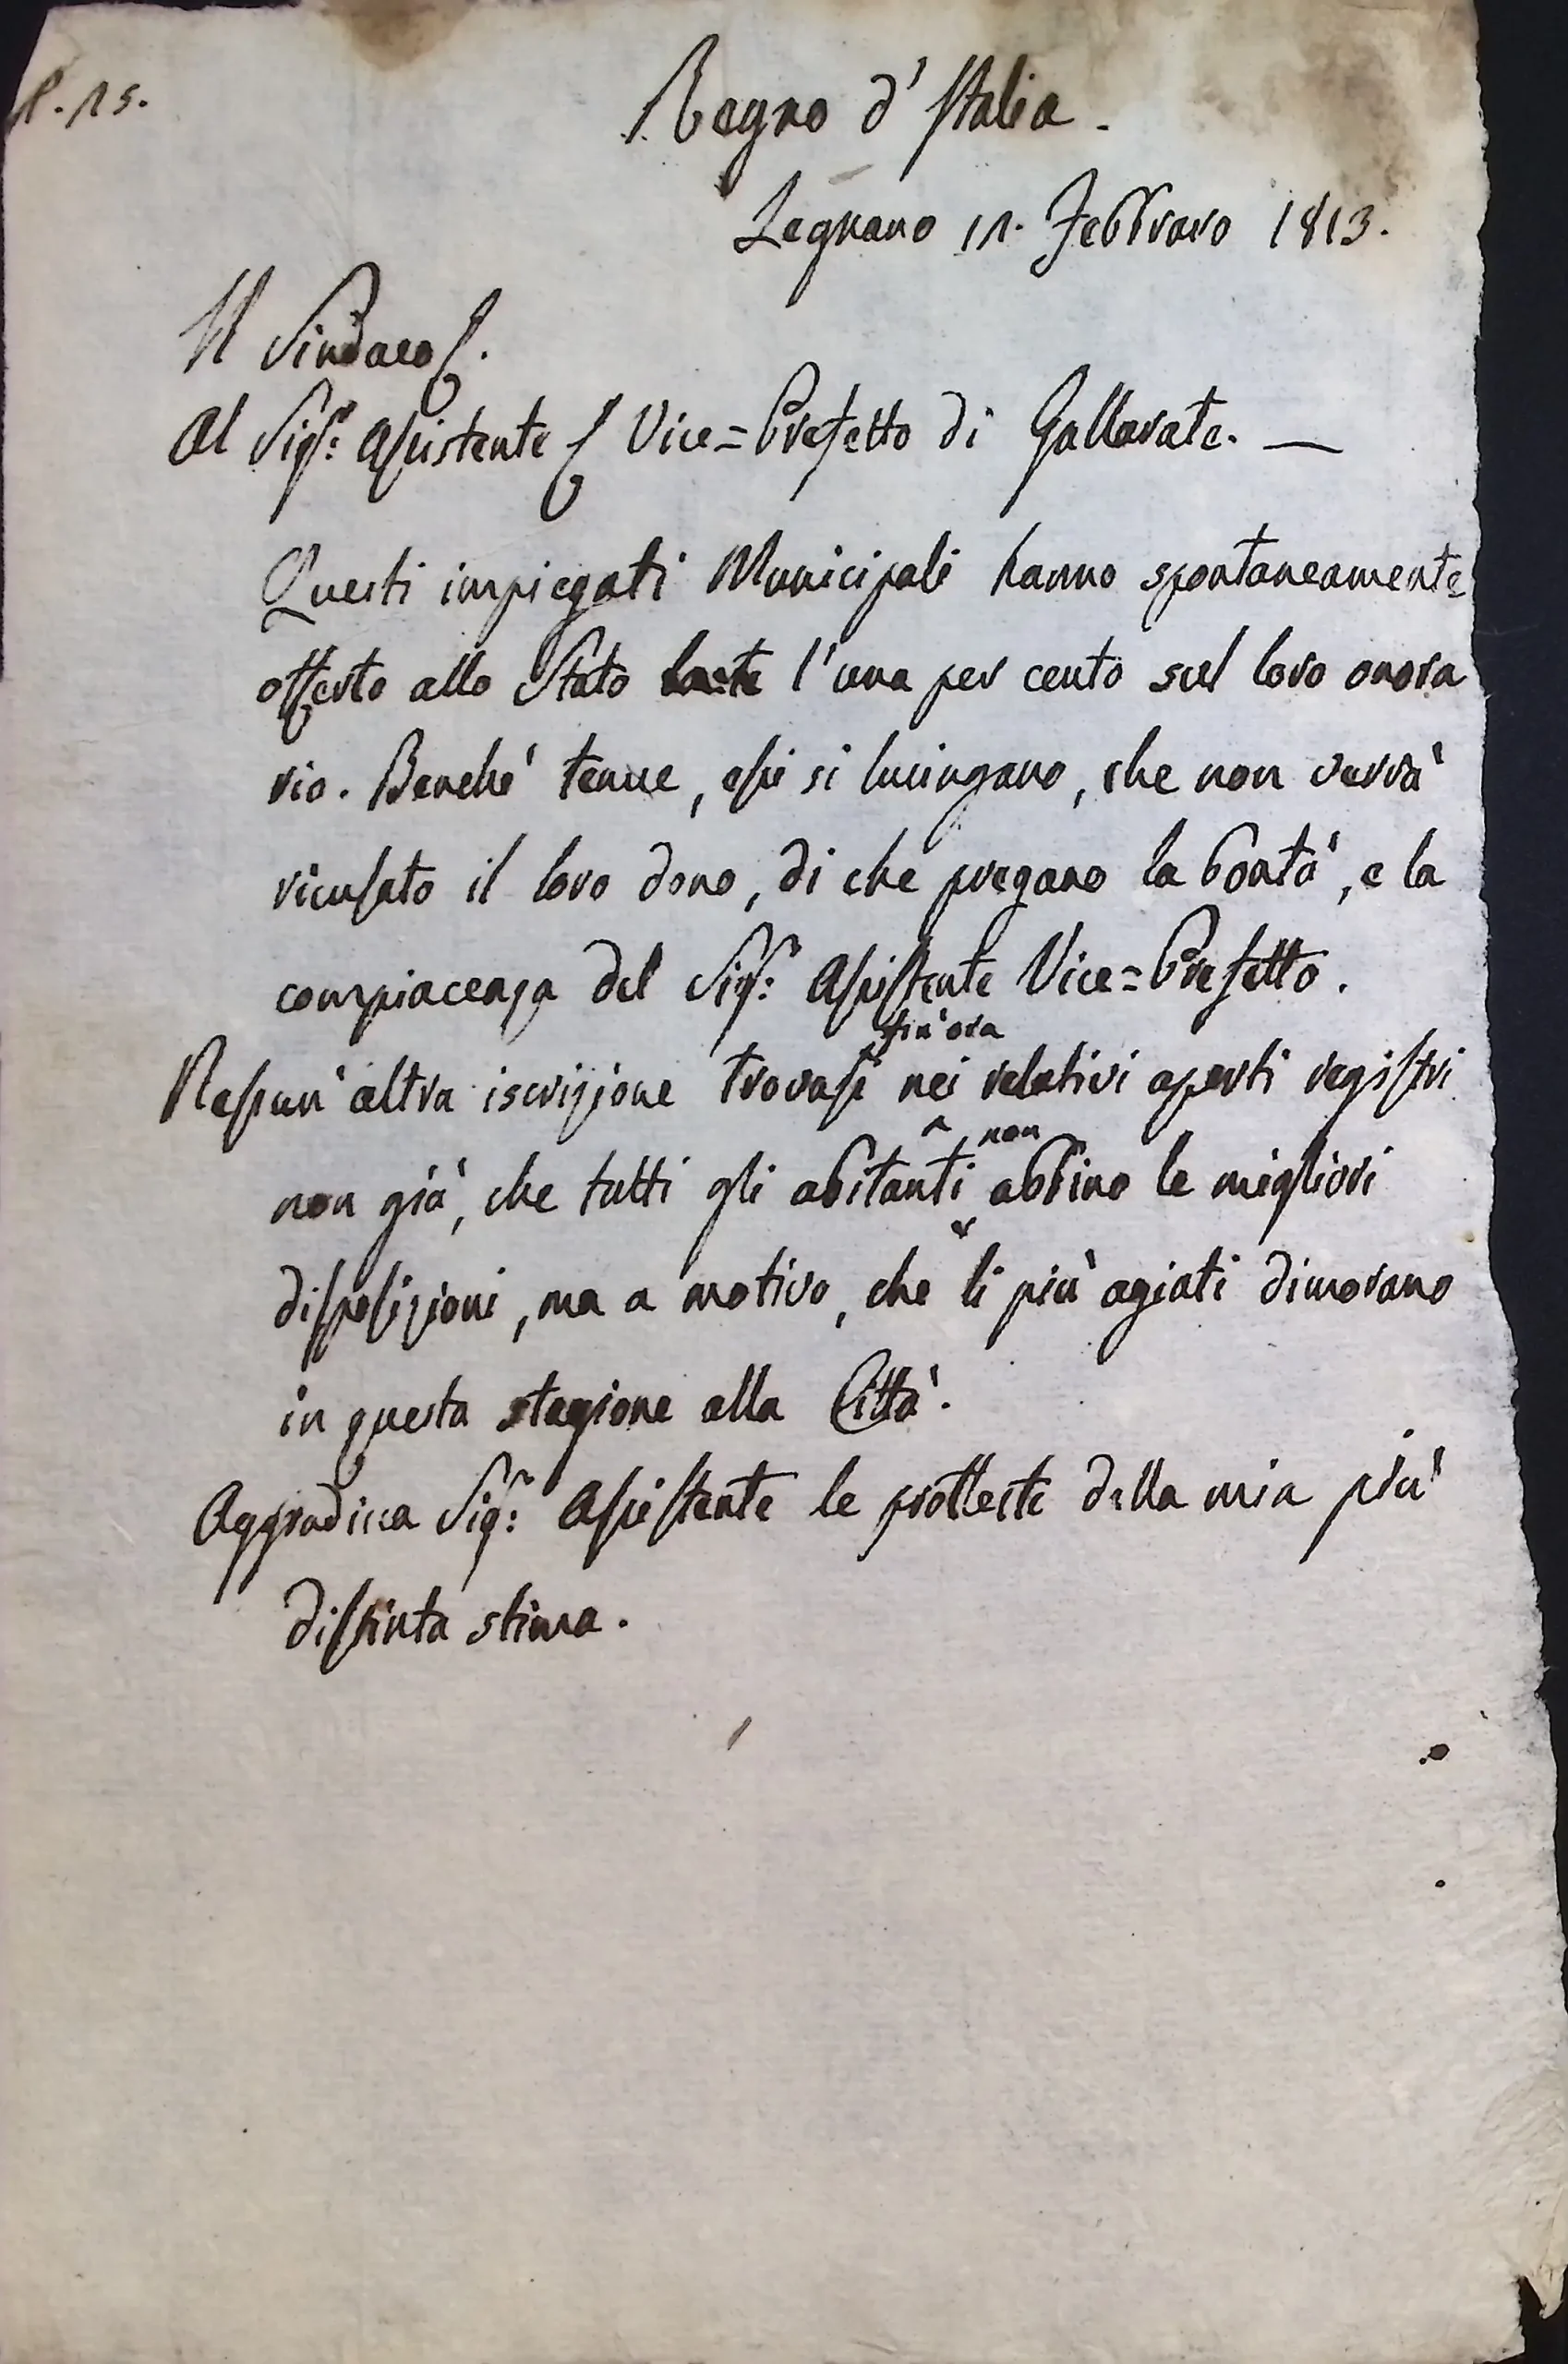 N. 15.
Regno d'Italia.
Legnano 11. Febbraro 1813.
Il Sindaco
Al Sigr: Assistente Vice=Prefetto di Gallarate. —
Questi impiegati Municipali hanno spontaneamente
offerto allo Stato l'una per cento sul loro onora
rio. Benché tenue, essi si lusingano, che non verrà
ricusato il loro dono, di che pregano la bontà, e la
compiacenza del Sigr: Assistente Vice=Prefetto.
fin'ora
Nessun'altra iscrizione trovasi nei relativi aperti registri
non
non già, che tutti gli abitanti abbino le migliori
disposizioni, ma a motivo, che li più agiati dimorano
in questa stagione alla Città.
Aggradisca Sigr: Assistente le protteste della mia più
distinta stima.